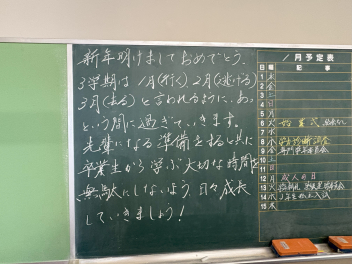 新年明けましておめでとう.
3学期は 1月(行く) 2月(逃げる)
3月(去る) と言われるように、あっ
という間に過ぎていきます。
先輩になる準備をすると共に
卒業生から学ぶ大切な時間を
無駄にしないよう 日々成長
していきましょう!
1月予定表
日 曜 記事
1 水
2 金
3 土
4 日
5 月
6 火 始業式
7 水
8 木
9 金
10 土
11 日
12 月 成人の日
13 火
14 水
15 木